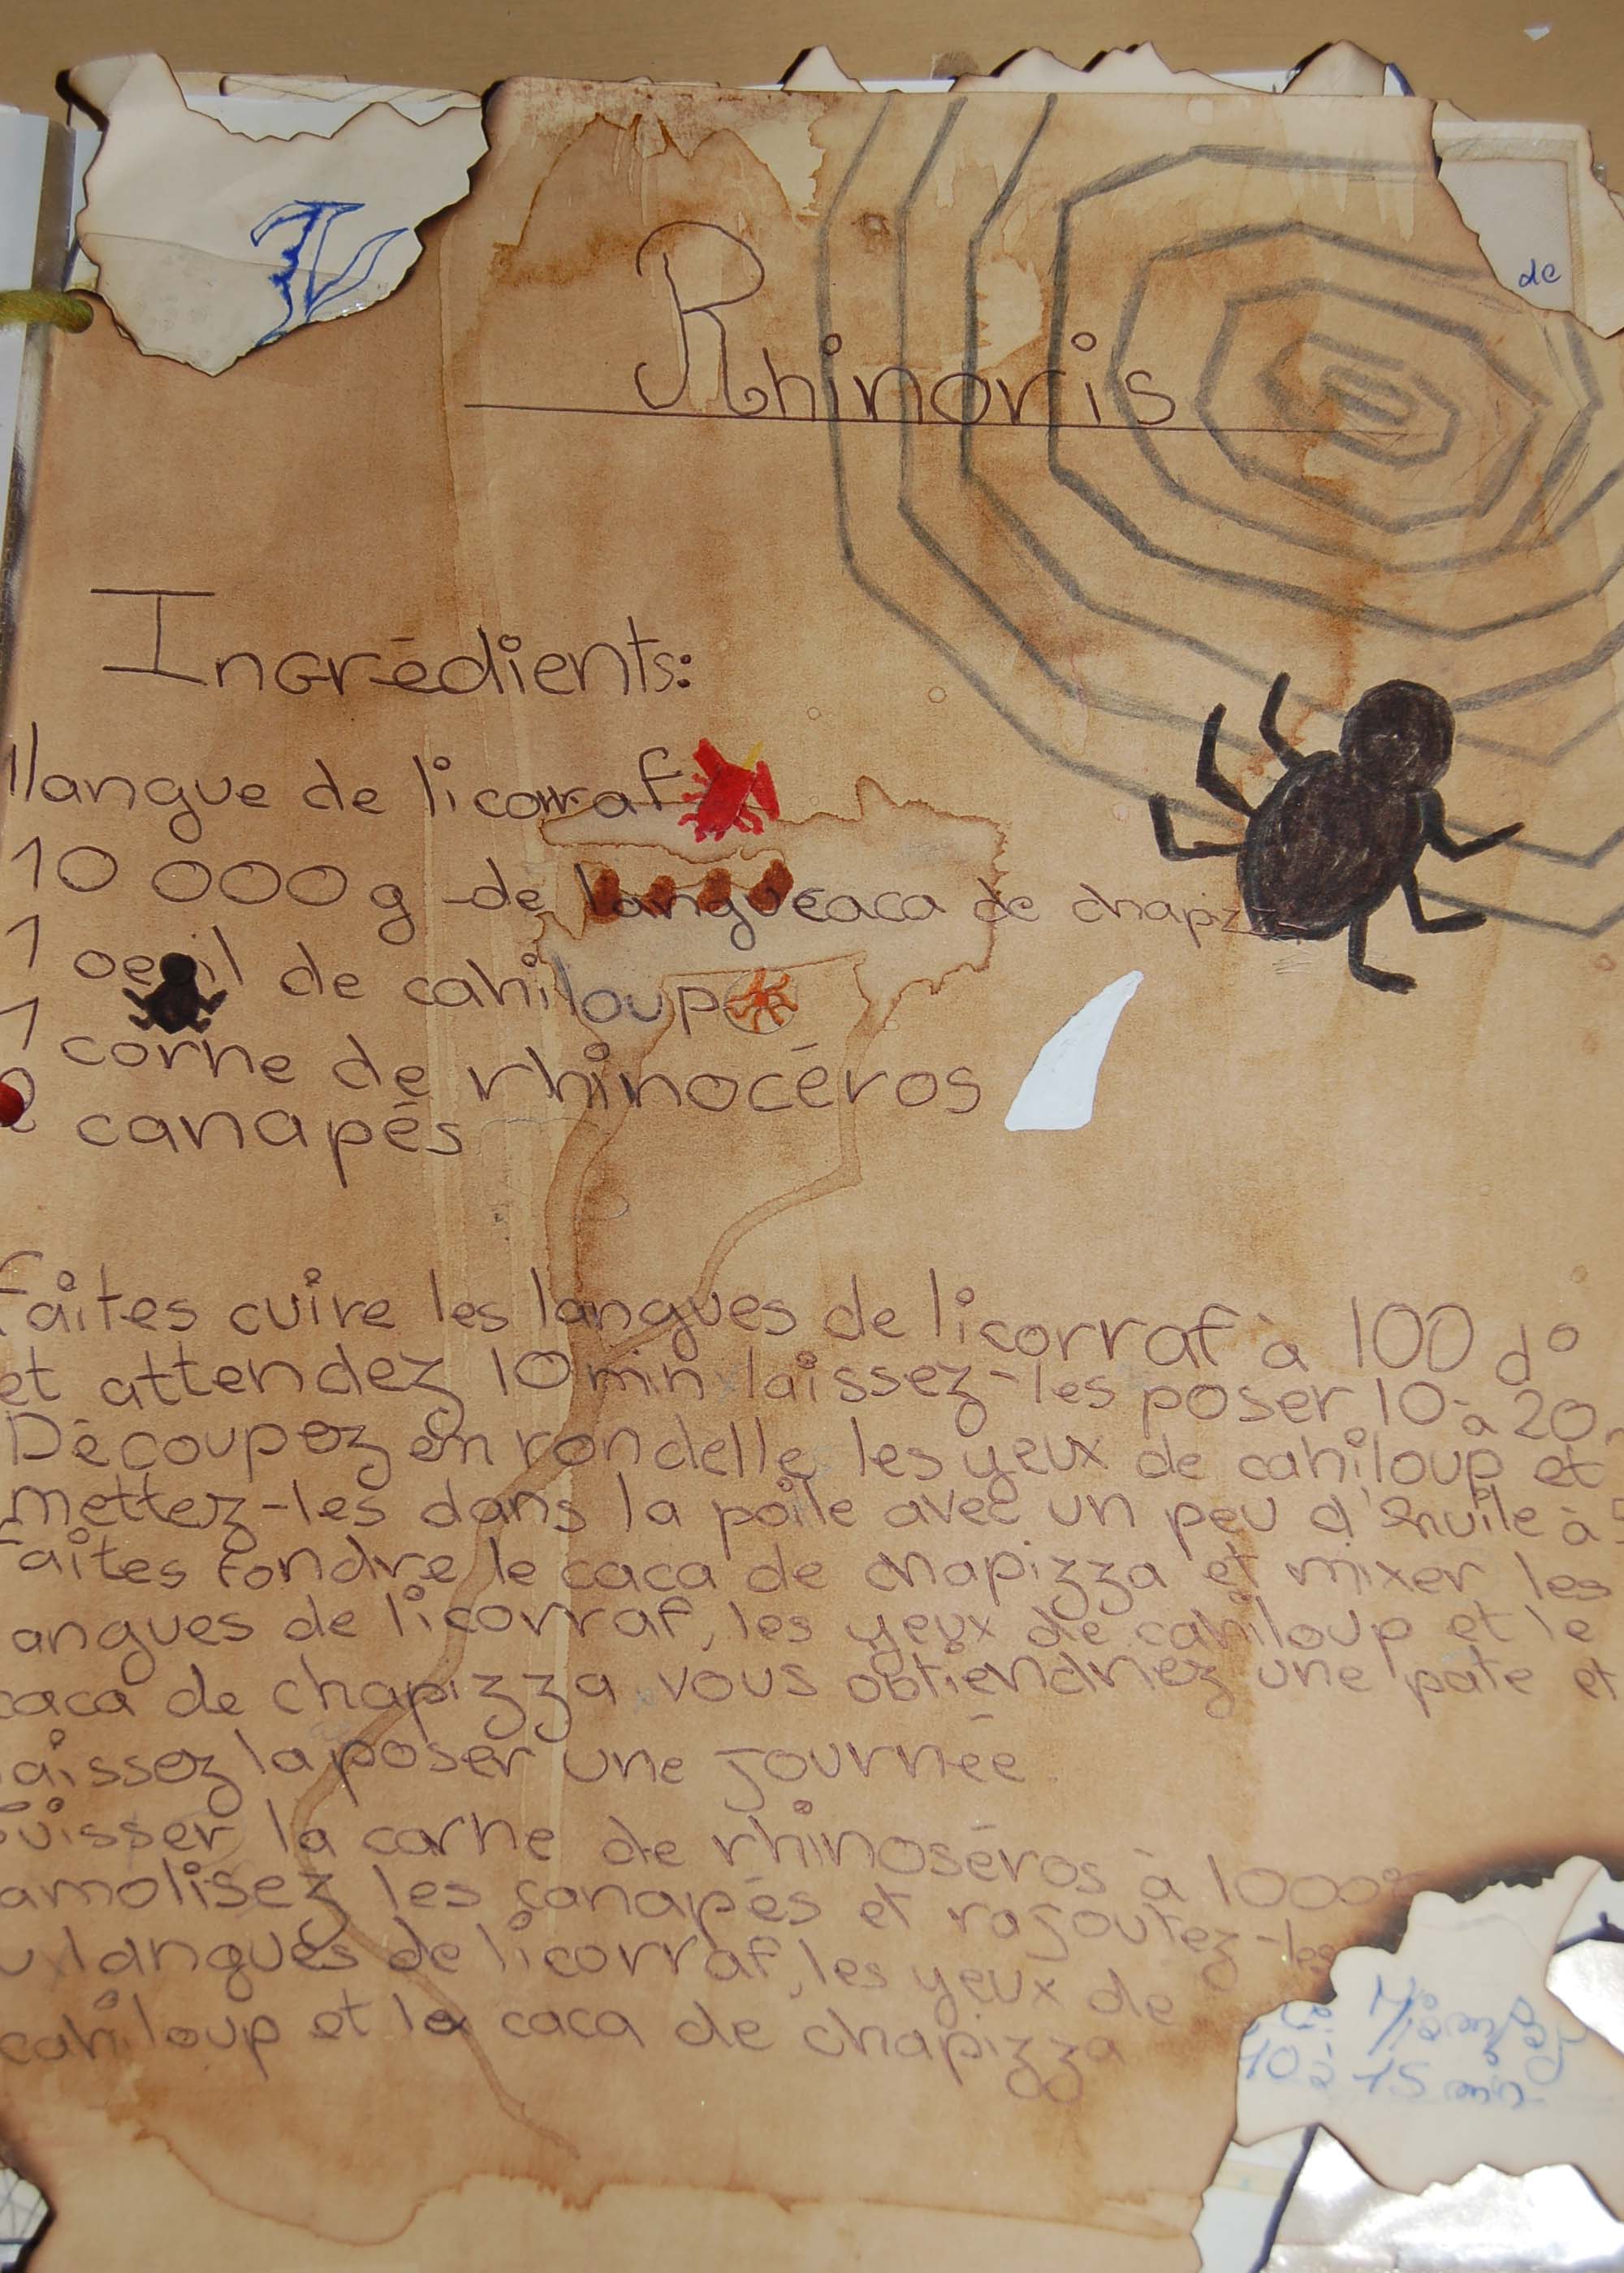 de
Rhinoris
Ingrédients:
1 langue de licorraf
10 000 g de caca de chapiz
1 oeil de cahiloup
1 corne de rhinocéros
canapés
faites cuire les langues de licorraf à 100 d°
et attendez 10 min laissez-les poser 10 à 20
Découpez en rondelle les yeux de cahiloup et
mettez-les dans la poile avec un peu d'huile à
faites fondre le caca de chapizza et mixer les
langues de licorraf, les yeux de cahiloup et le
caca de chapizza vous obtiendriez une pate et
laissez la poser une journée
la corne de rhinoséros à 1000°
amolisez les canapés et rajoutez-les
langues de licorraf, les yeux de
cahiloup et le caca de chapizza
10 à 15 min